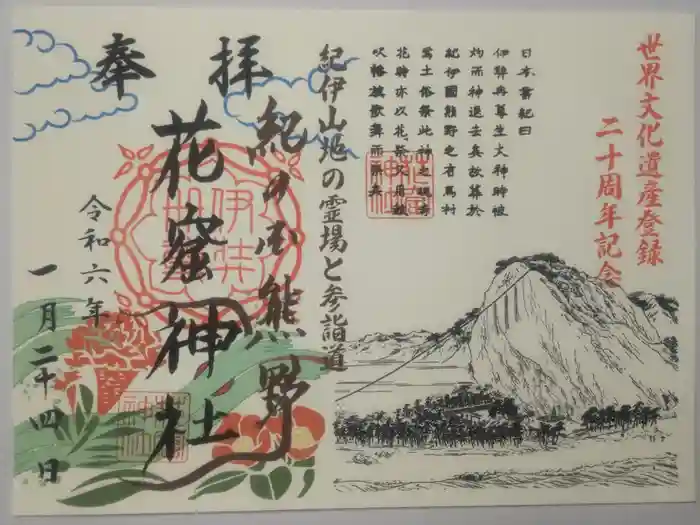 世界文化遺産登録
二十周年記念
日本書紀曰
伊弉冉尊生火神時被
灼而神退去矣故葬於
紀伊國熊野之有馬村
焉土俗祭此神之魂者
花時亦以花祭又用鼓
吹幡旗歌舞而祭矣
紀伊山地の霊場と参詣道
奉拝
紀の国熊野
花窟神社
令和六年
一月二十四日